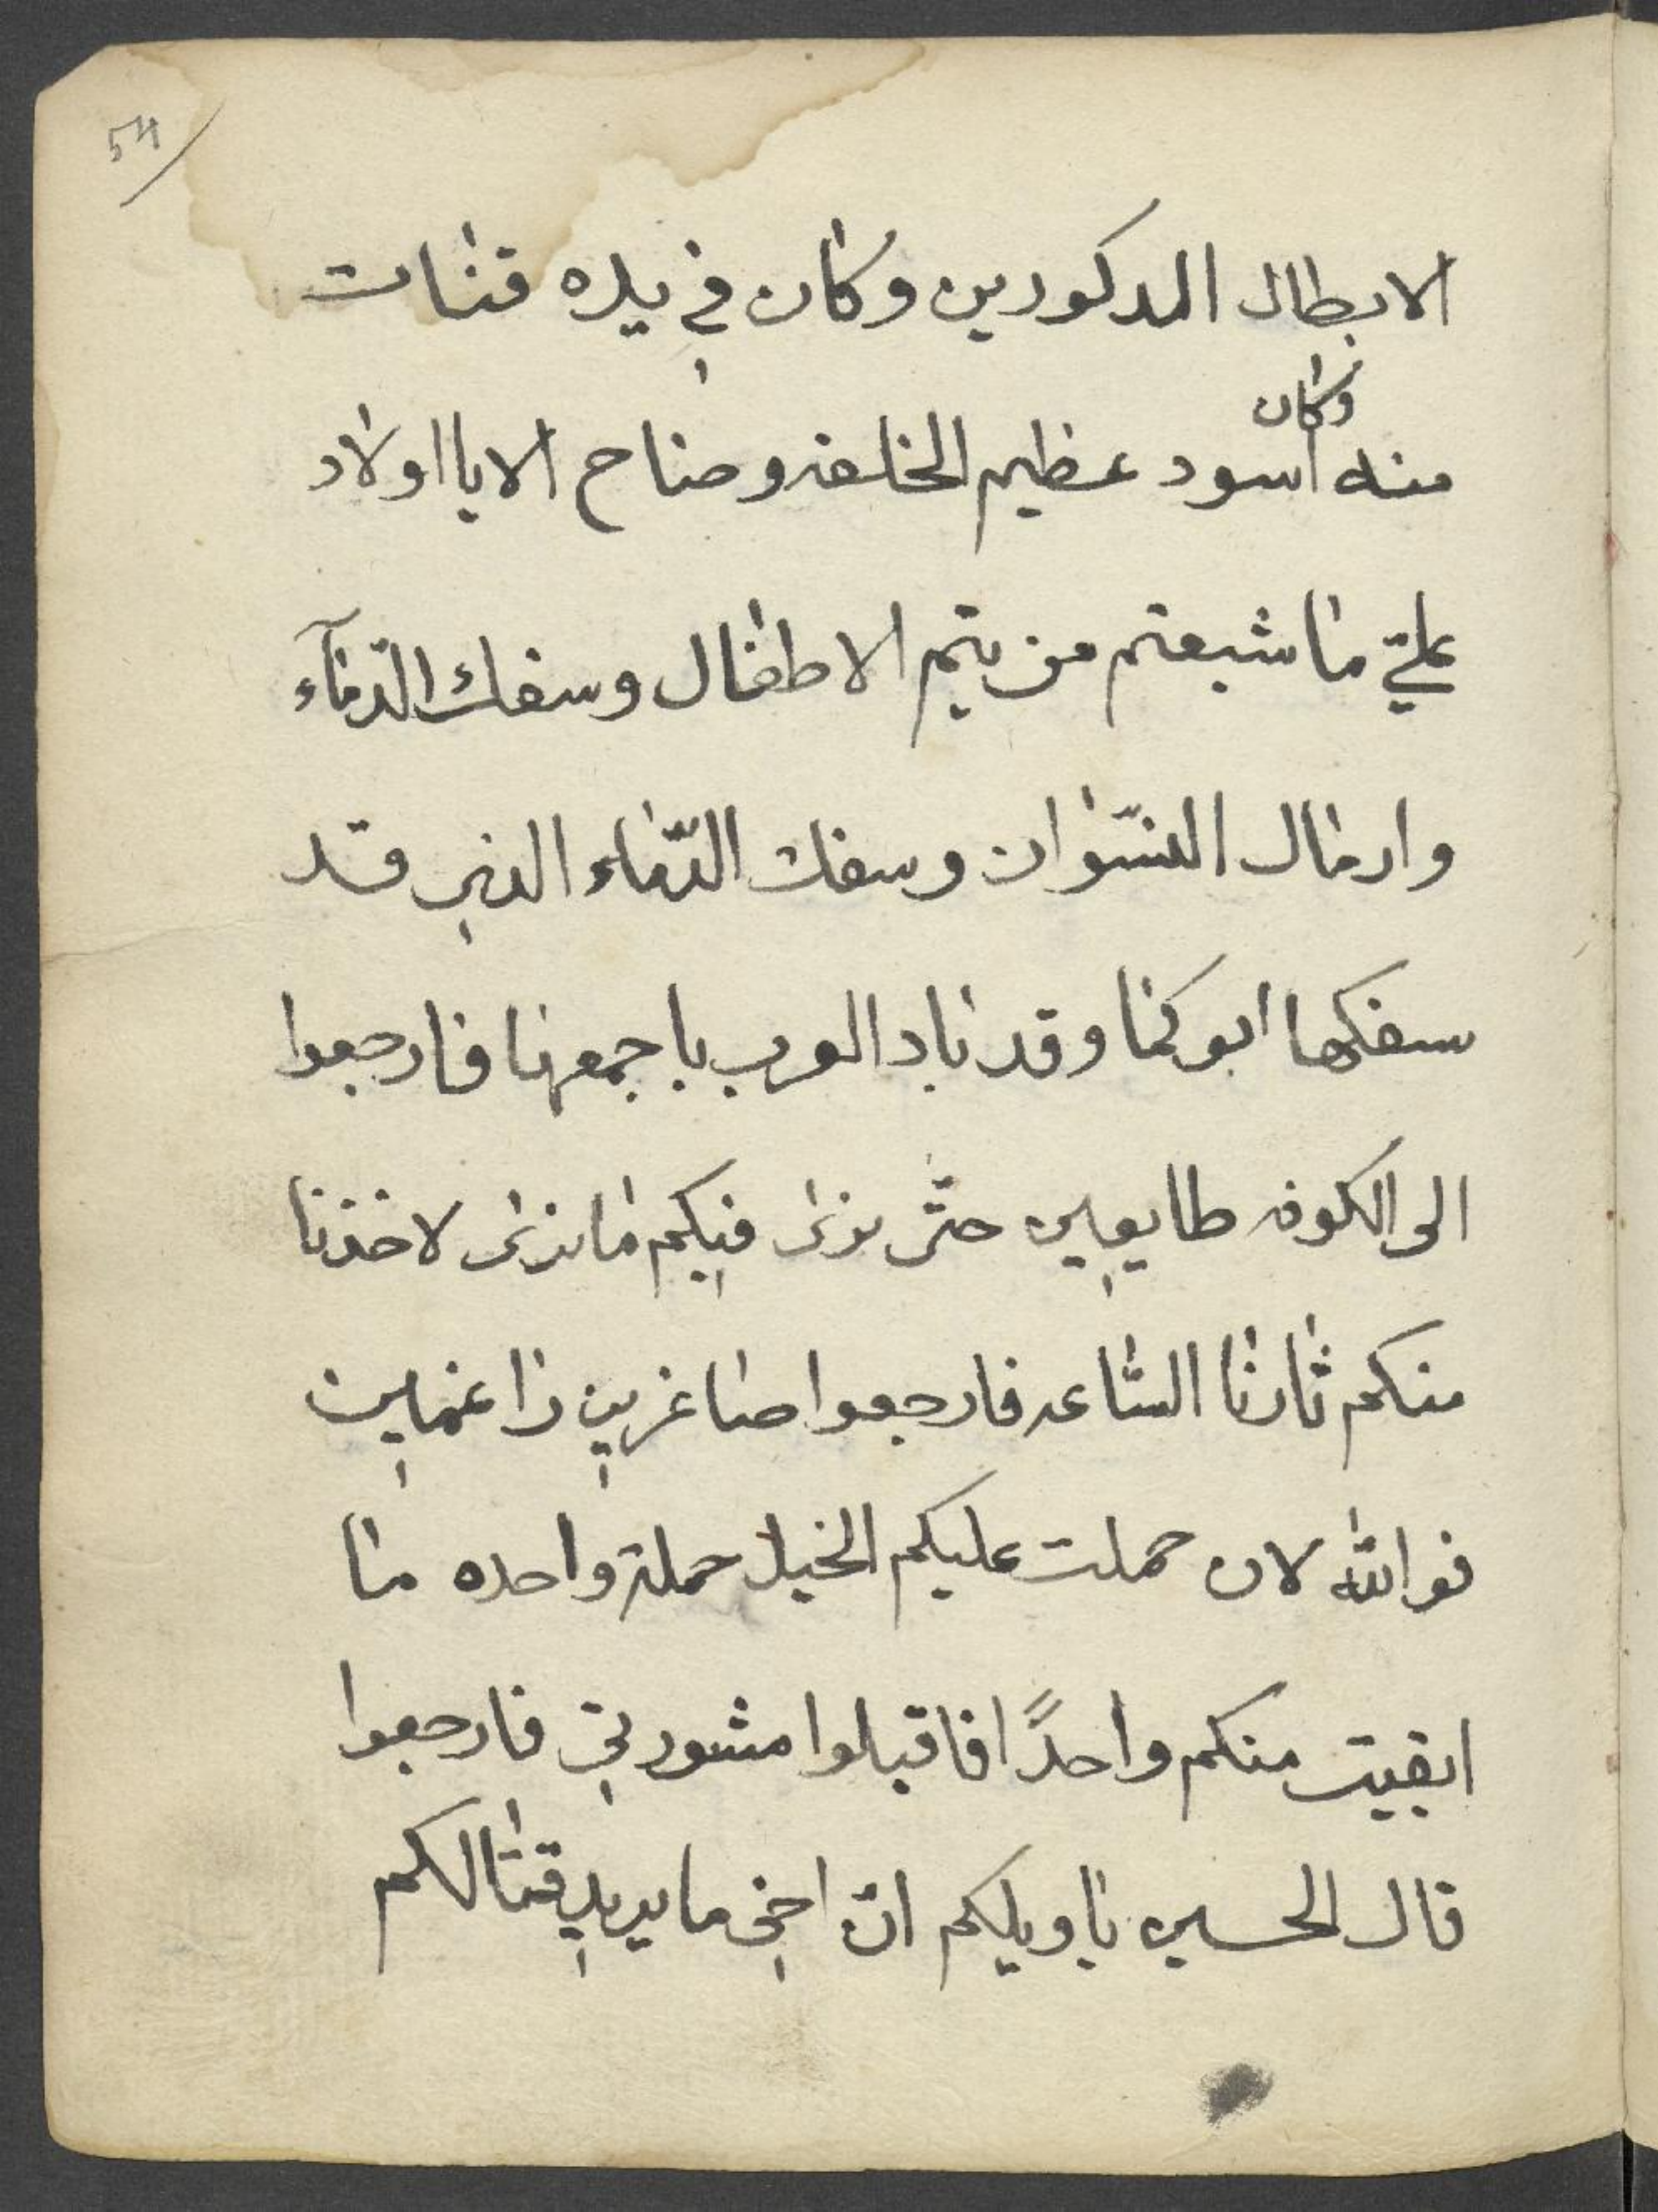 54
الابطال المدكورين وكان في يده قنات
وكان
منه اسود عظيم الخلقه وصاح الا يا اولاد
علي ما شبعتم من يتم الاطفال وسفك الدّمآء
وارمال النسّوان وسفك الدّماء الذي قد
سفكها ابوكما وقد باد العرب باجمعها فارجعوا
الى الكوفه طايعين حتّى نرى فيكم ما نرى لاخذنا
منكم ثارنا السّاعه فارجعوا صاغرين راغمين
فوالله لان حملت عليكم الخيل حملة واحده ما
ابقيت منكم واحدًا فاقبلوا مشورتي فارجعوا
قال الحسين يا ويلكم انّ اخي ما يريد قتالكم